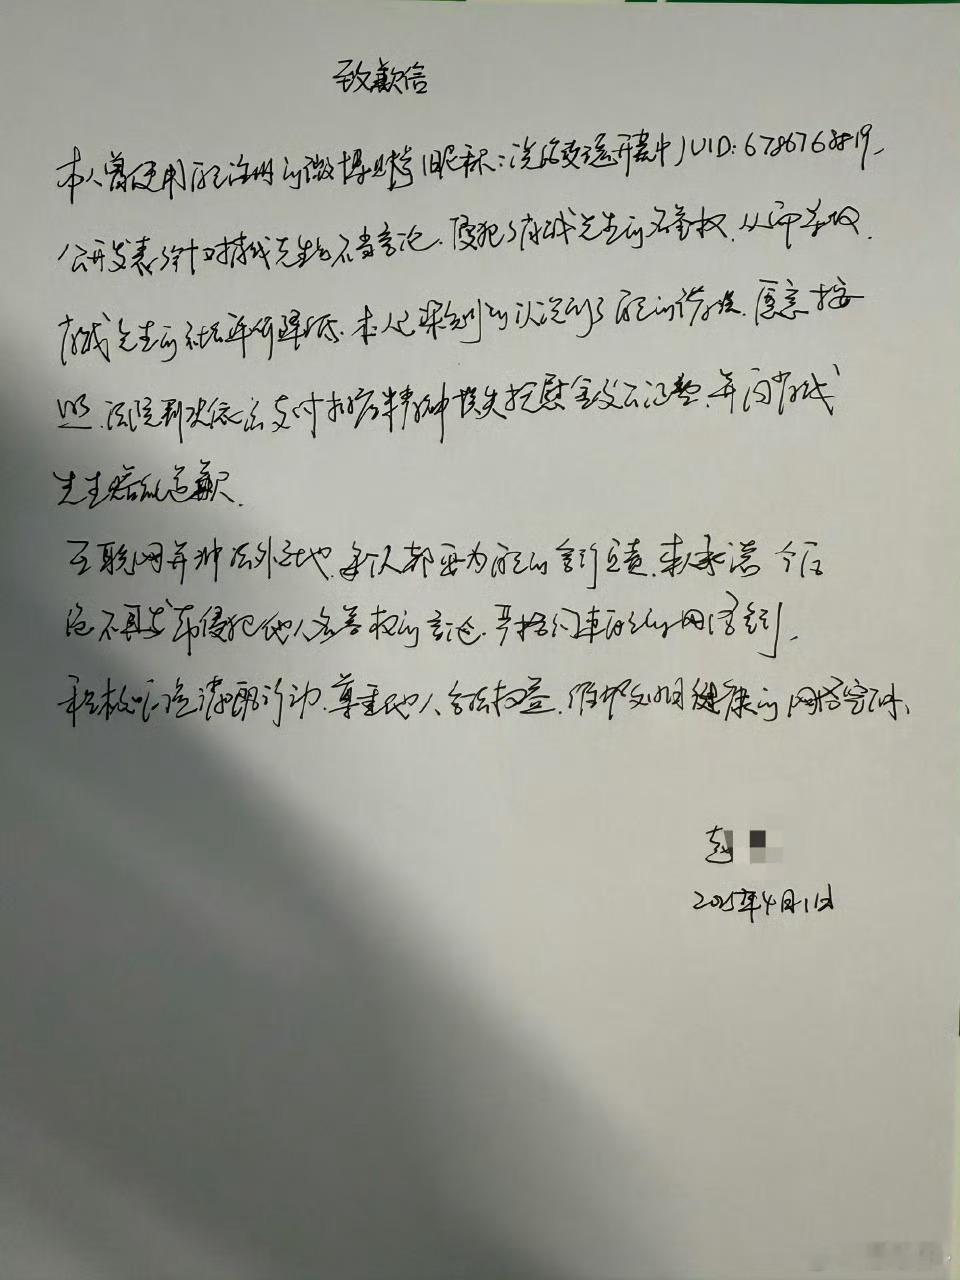 致歉信
本人曾使用自己注册的微博账号(昵称:没改变还开着中)UID:6786763819,
公开发表了针对成先生的不当言论,侵犯了成先生的名誉权,从而导致
成先生的社会评价降低。本人已深刻的认识到了自己的错误,愿意按
照法院判决依法支付精神损失抚慰金及公证费,并向成
先生赔礼道歉。
互联网并非法外之地,每个人都要为自己的言行负责,本人承诺今后
绝不再发布侵犯他人名誉权的言论,严格约束自己的网络言行,
积极,尊重他人合法权益,维护文明健康的网络空间。
赵
2025年4月1日